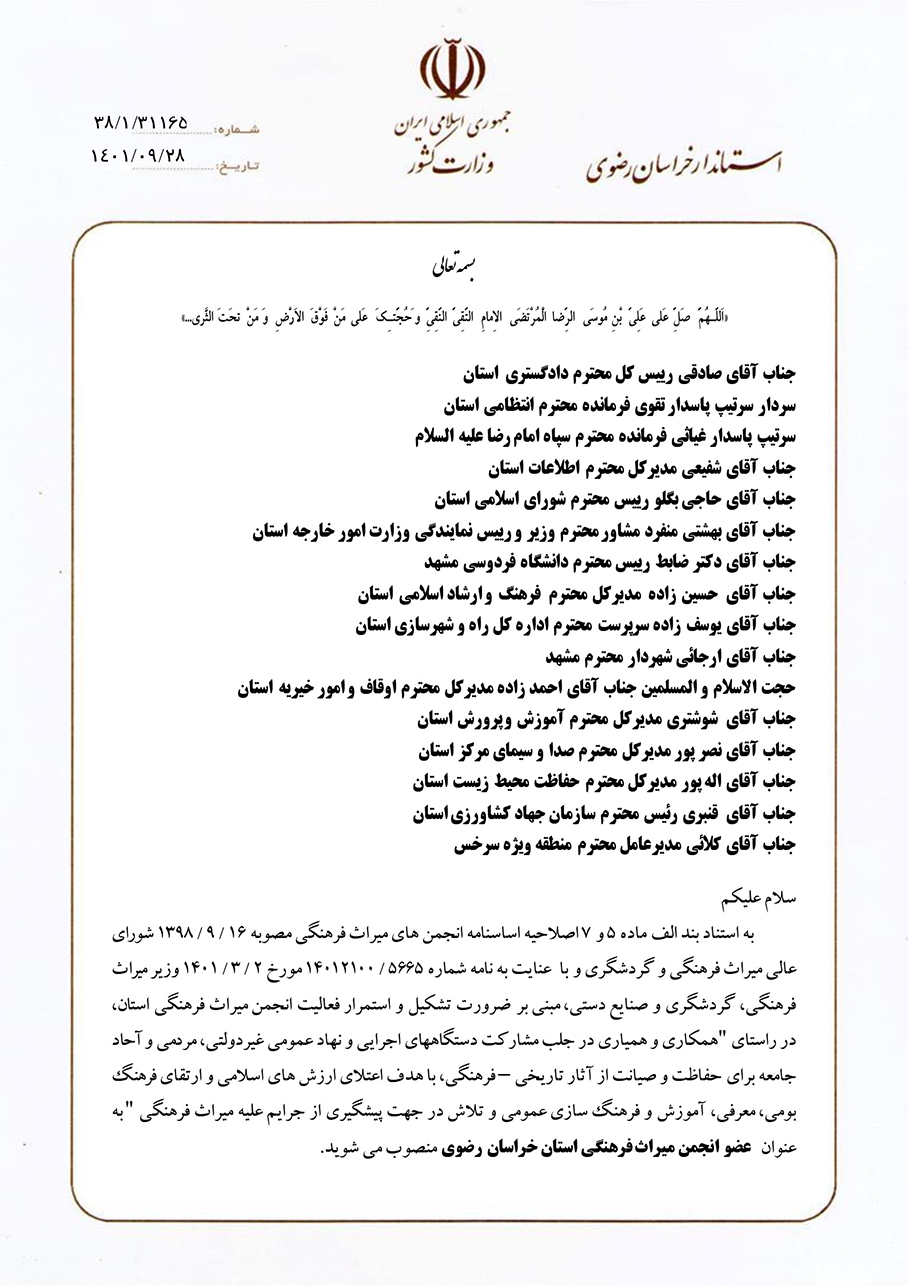 جمهوری اسلامی ایران
وزارت کشور
استاندار خراسان رضوی
شماره: ۳۸/۱/۳۱۱۶۵
تاریخ: ۱٤۰۱/۰۹/۲۸
بسمه تعالی
«اَللّـهُمَّ صَلِّ عَلى عَلِىِّ بْنِ مُوسَى الرِّضا الْمُرْتَضَى الاِمامِ التَّقِىِّ النَّقِىِّ وَحُجَّتِـکَ عَلى مَنْ فَوْقَ الاَرْضِ وَ مَنْ تَحْتَ الثَّرى...»
جناب آقای صادقی رییس کل محترم دادگستری استان
سردار سرتیپ پاسدار تقوی فرمانده محترم انتظامی استان
سرتیپ پاسدار غیاثی فرمانده محترم سپاه امام رضا علیه السلام
جناب آقای شفیعی مدیرکل محترم اطلاعات استان
جناب آقای حاجی بگلو رییس محترم شورای اسلامی استان
جناب آقای بهشتی منفرد مشاور محترم وزیر و رییس نمایندگی وزارت امور خارجه استان
جناب آقای دکتر ضابط رییس محترم دانشگاه فردوسی مشهد
جناب آقای حسین زاده مدیرکل محترم فرهنگ و ارشاد اسلامی استان
جناب آقای یوسف زاده سرپرست محترم اداره کل راه و شهرسازی استان
جناب آقای ارجائی شهردار محترم مشهد
حجت الاسلام و المسلمین جناب آقای احمد زاده مدیرکل محترم اوقاف و امور خیریه استان
جناب آقای شوشتری مدیرکل محترم آموزش وپرورش استان
جناب آقای نصر پور مدیرکل محترم صدا و سیمای مرکز استان
جناب آقای اله پور مدیرکل محترم حفاظت محیط زیست استان
جناب آقای قنبری رئیس محترم سازمان جهاد کشاورزی استان
جناب آقای کلائی مدیرعامل محترم منطقه ویژه سرخس
سلام علیکم
به استناد بند الف ماده ۵ و ۷ اصلاحیه اساسنامه انجمن های میراث فرهنگی مصوبه ۱۶ / ۹ / ۱۳۹۸ شورای
عالی میراث فرهنگی و گردشگری و با عنایت به نامه شماره ۵۶۶۵ / ۱۴۰۱۲۱۰۰ مورخ ۲ / ۳ / ۱۴۰۱ وزیر میراث
فرهنگی، گردشگری و صنایع دستی، مبنی بر ضرورت تشکیل و استمرار فعالیت انجمن میراث فرهنگی استان،
در راستای "همکاری و همیاری در جلب مشارکت دستگاههای اجرایی و نهاد عمومی غیردولتی، مردمی و آحاد
جامعه برای حفاظت و صیانت از آثار تاریخی –فرهنگی، با هدف اعتلای ارزش های اسلامی و ارتقای فرهنگ
بومی، معرفی، آموزش و فرهنگ سازی عمومی و تلاش در جهت پیشگیری از جرایم علیه میراث فرهنگی "به
عنوان عضو انجمن میراث فرهنگی استان خراسان رضوی منصوب می شوید.